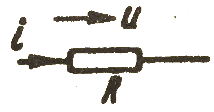 u
i
R